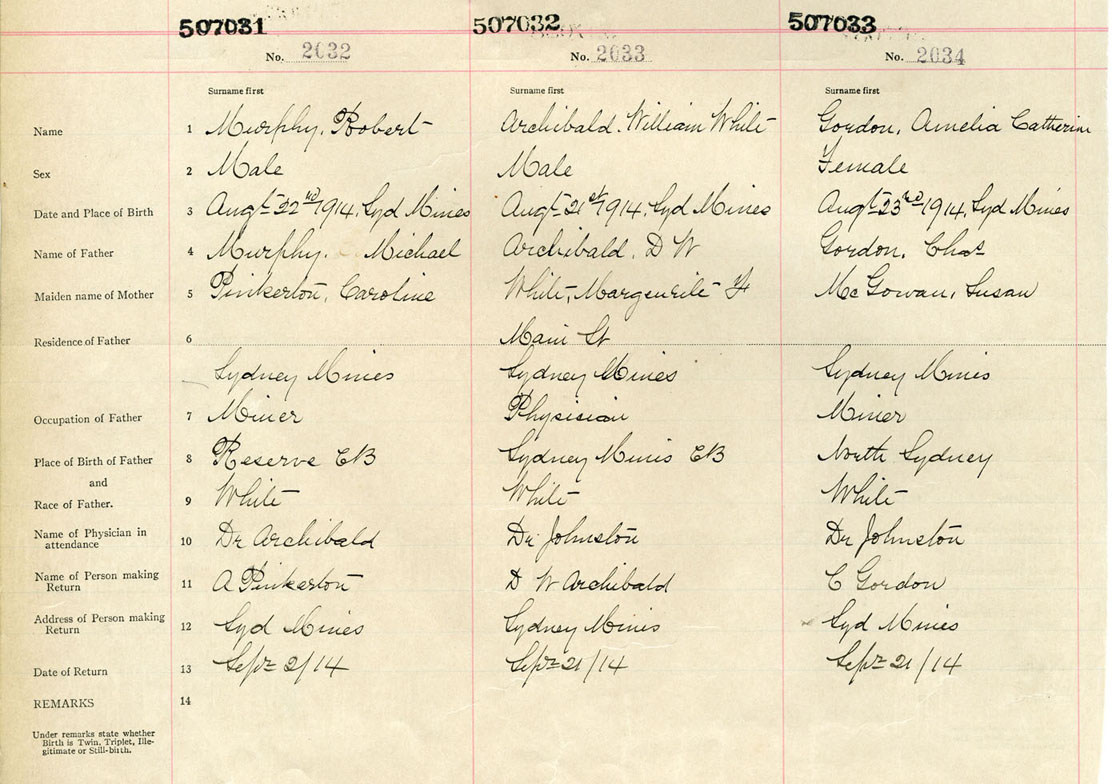 507031 507032 507033
No. 2032 No. 2033 No. 2034
Surname first Surname first Surname first
Name 1 Murphy, Robert Archibald, William White Gordon, Amelia Catherin
Sex 2 Male Male Female
Date and Place of Birth 3 Augt 22nd 1914, Syd Mines Augt 21st 1914, Syd Mines Augt 23rd 1914, Syd Mines
Name of Father 4 Murphy, Michael Archibald, D W Gordon, Chas
Maiden name of Mother 5 Pinkerton, Caroline White, Marguerite McGowan, Susan
Residence of Father 6 Main St
Sydney Mines Sydney Mines Sydney Mines
Occupation of Father 7 Miner Physician Miner
Place of Birth of Father 8 Reserve CB Sydney Mines CB North Sydney
and
Race of Father. 9 White White White
Name of Physician in
attendance 10 Dr Archibald Dr Johnston Dr Johnston
Name of Person making
Return 11 A Pinkerton D W Archibald C Gordon
Address of Person making
Return 12 Syd Mines Sydney Mines Syd Mines
Date of Return 13 Sept 2/14 Sept 21/14 Sept 21/14
REMARKS 14
Under remarks state whether
Birth is Twin, Triplet, Ille-
gitimate or Still-birth.